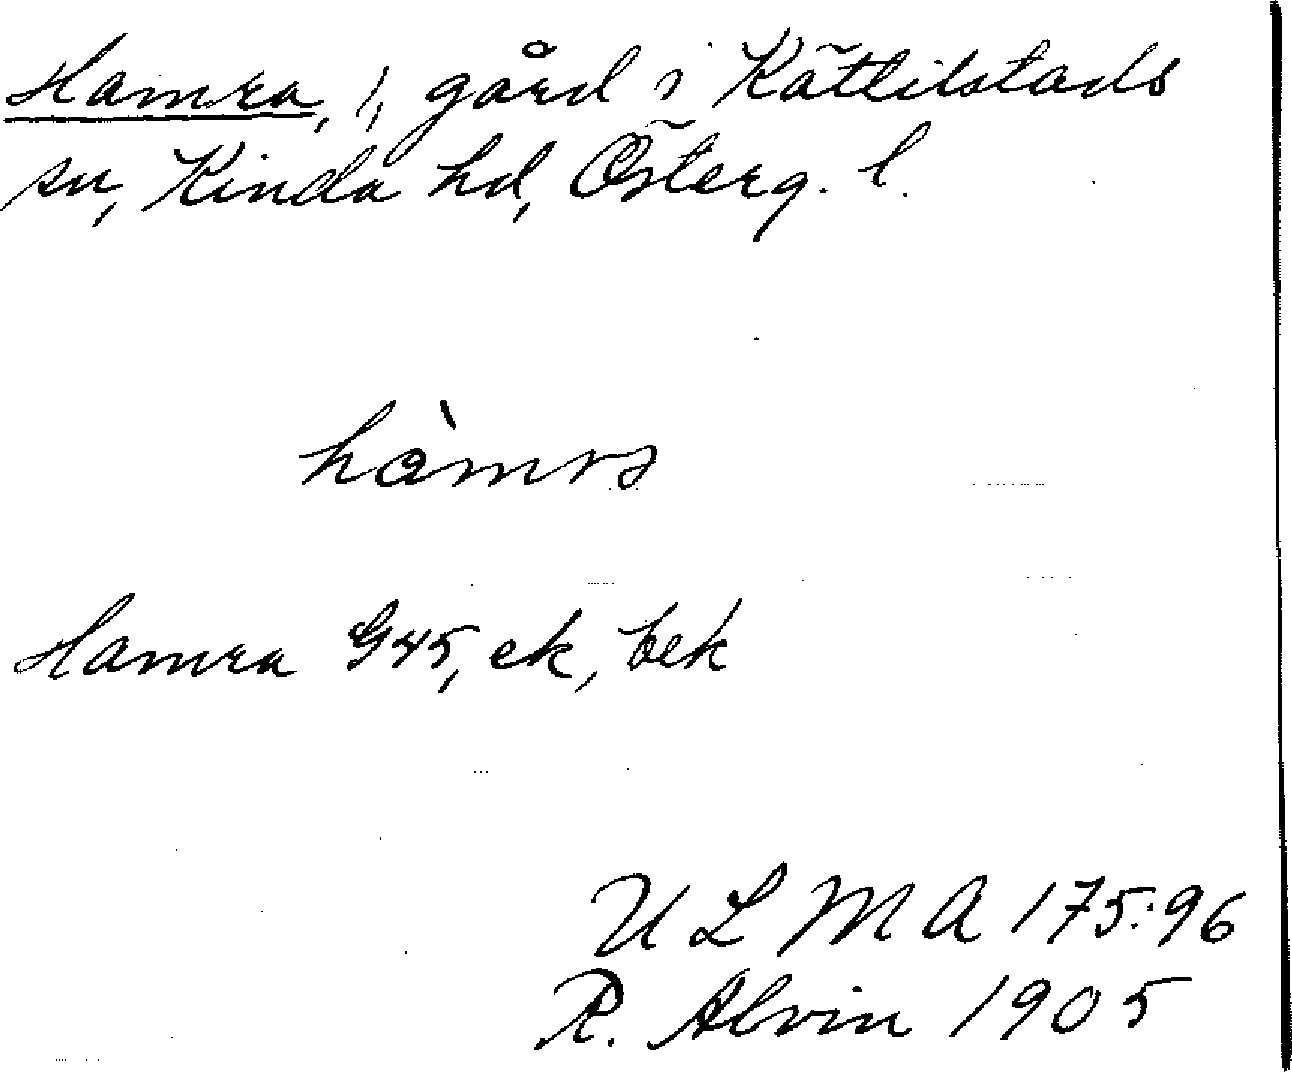 Hamra, 1, gård i Kättilstads
sn, Kinda hd, Österg. l.
hàmrs
Hamra G45, ek, bek
ULMA 175:96
R. Alvin 1905